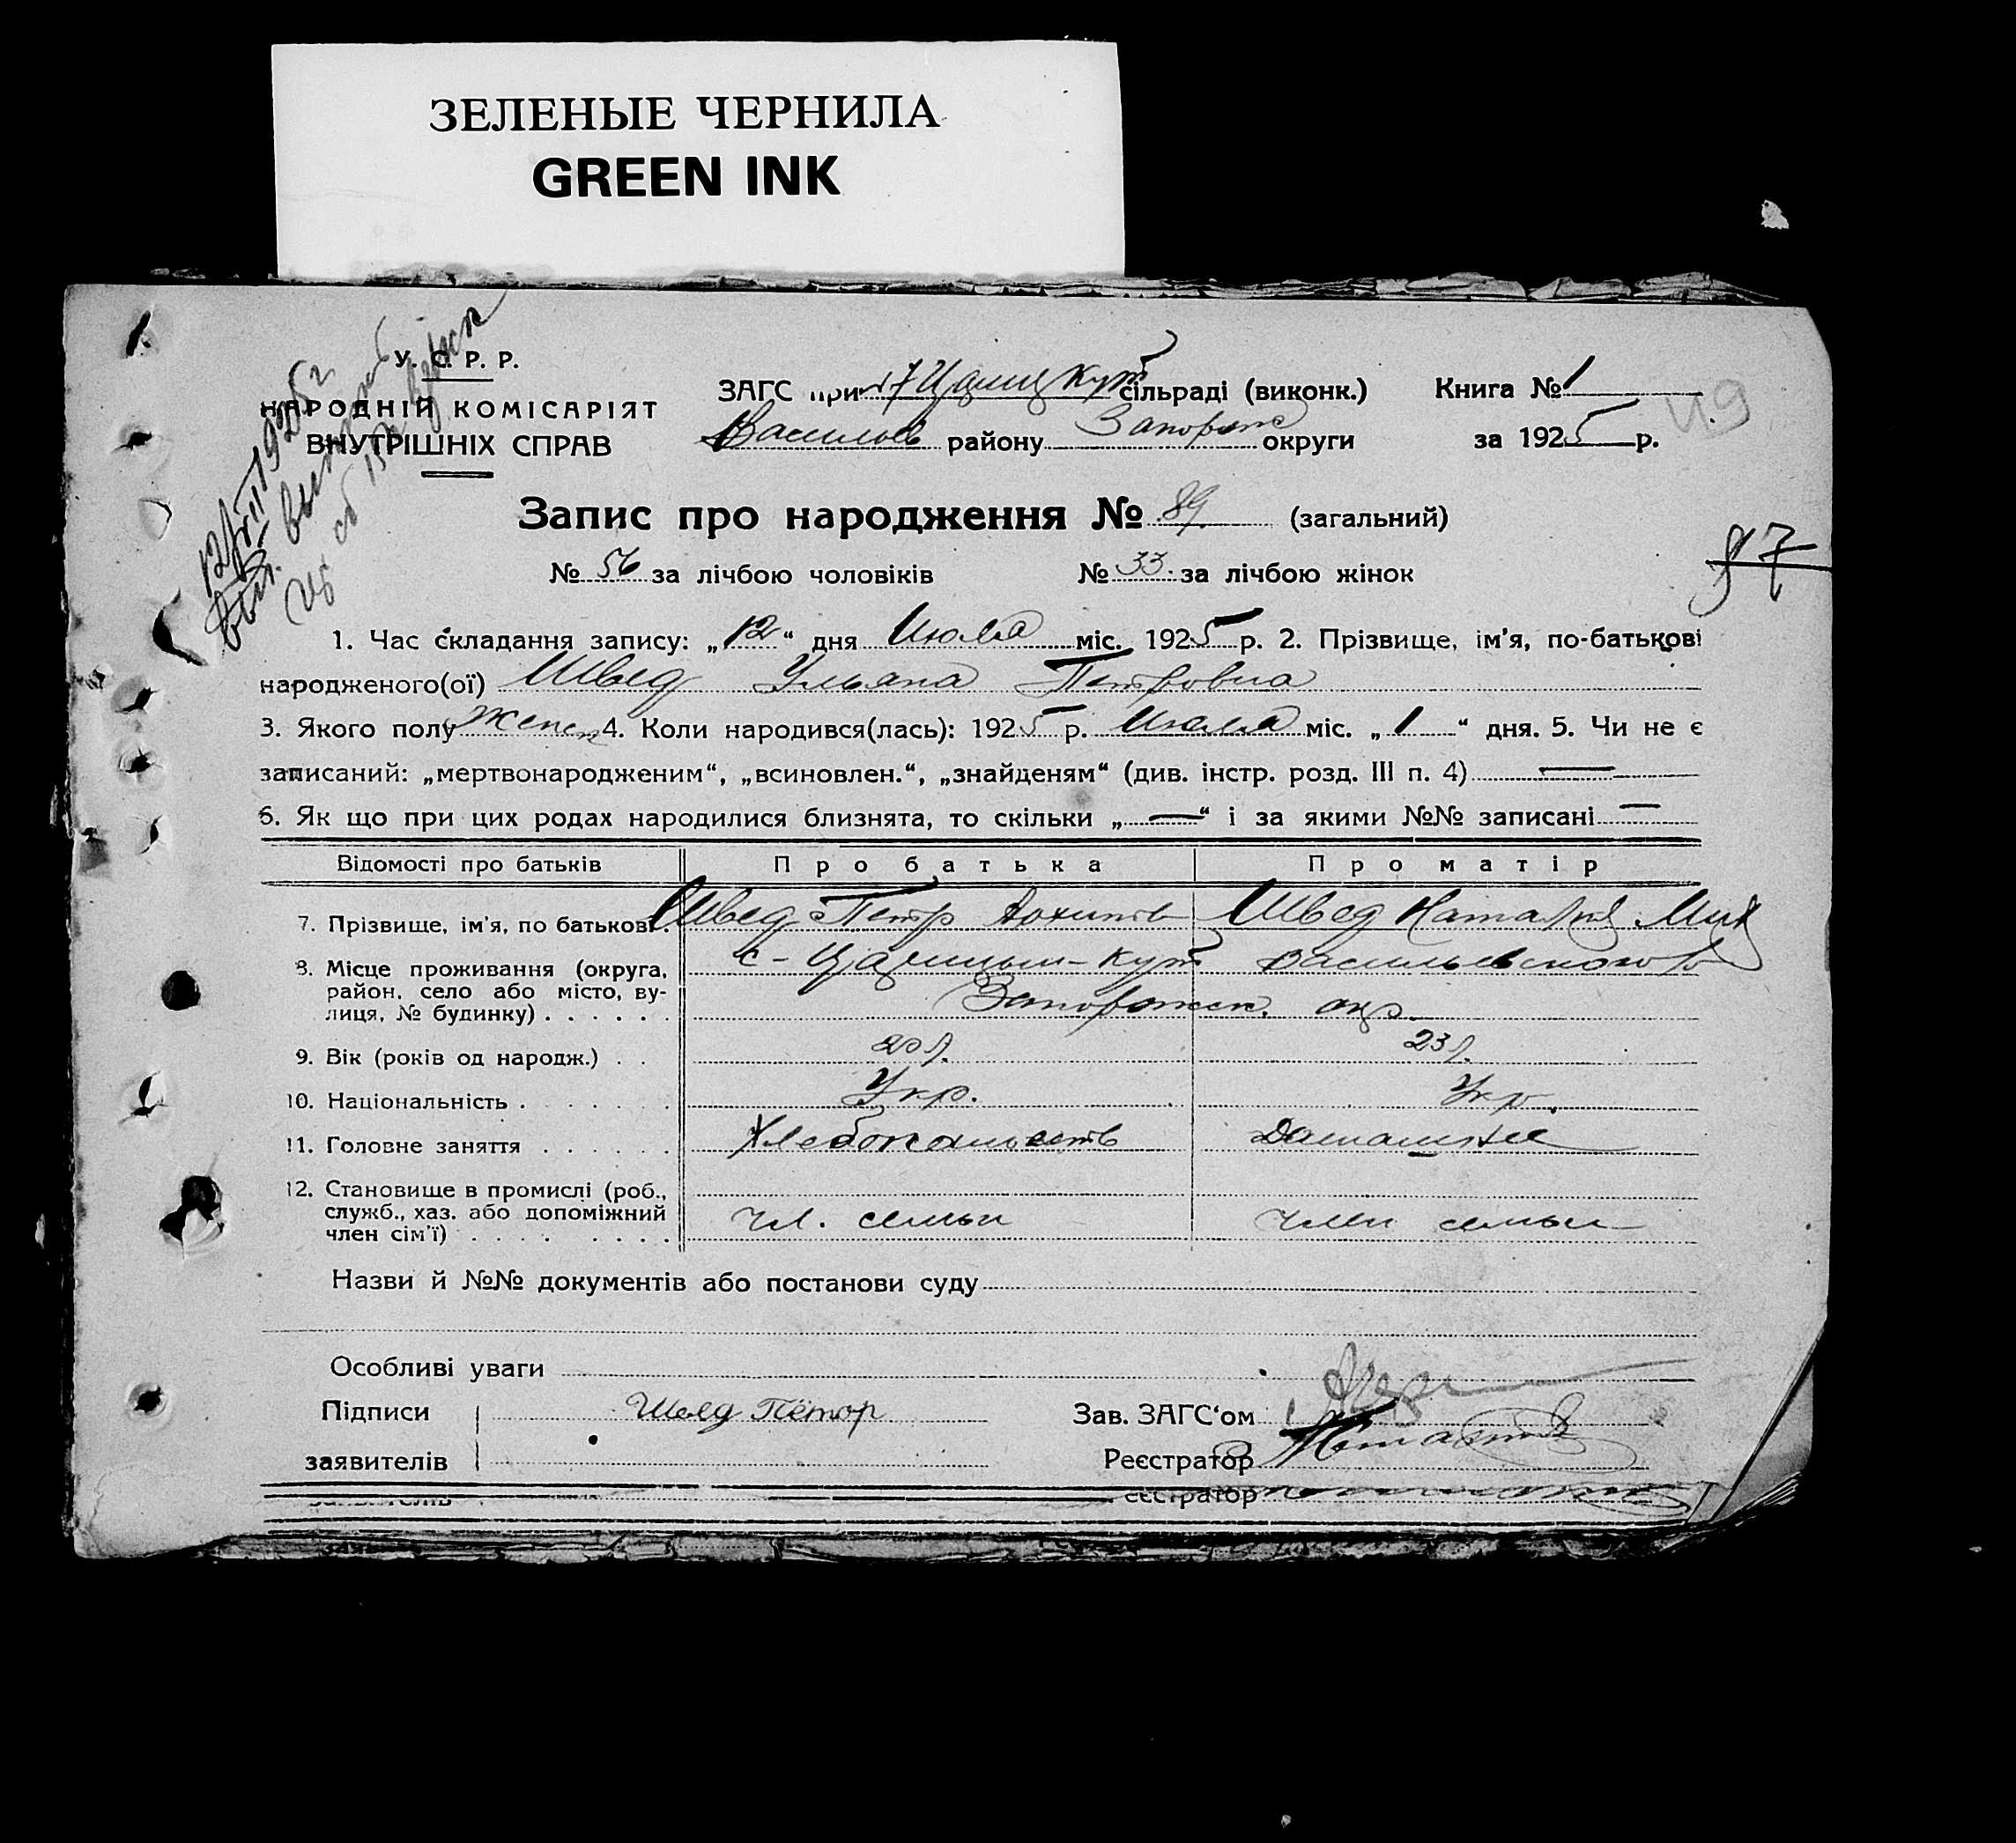 ЗЕЛЕНЫЕ ЧЕРНИЛА
GREEN INK
У. С. Р. Р.
НАРОДНІЙ КОМІСАРІЯТ
ВНУТРІШНІХ СПРАВ
ЗАГС при сільраді (виконк.) Книга № 1
Васильев району Запорож округи за 1925 р.
49
12/VII 1925 г.
Запис про народження № 89 (загальний)
№ 56 за лічбою чоловіків № 33 за лічбою жінок
87
1. Час складання запису: „12“ дня Июля міс. 1925 р. 2. Прізвище, ім'я, по-батькові
народженого(ої) Швед Ульяна Петровна
3. Якого полу женск 4. Коли народився(лась): 1925 р. Июля міс. „1“ дня. 5. Чи не є
записаний: „мертвонародженим“, „всиновлен.“, „знайденям“ (див. інстр. розд. III п. 4) —
6. Як що при цих родах народилися близнята, то скільки „—“ і за якими №№ записані —
Відомості про батьків Про батька Про матір
7. Прізвище, ім'я, по батькові. Швед Петр Архипов Швед Наталья Мих
8. Місце проживання (округа, район, село або місто, ву-
лиця, № будинку) . . . . . . с-Царицын-Кут Васильевского р
Запорожск. окр.
9. Вік (років од народж.) . . 20 г. 23 г.
10. Національність . . . . . . Укр. Укр.
11. Головне заняття . . . . . . Хлебопашеств Домашнее
12. Становище в промислі (роб.,
служб., хаз. або допоміжний
член сім'ї) . . . . . . . . чл. семьи член семьи
Назви й №№ документів або постанови суду
Особливі уваги
Підписи Швед Пётор Зав. ЗАГС'ом
заявителів Реєстратор
заявителів еєстратор